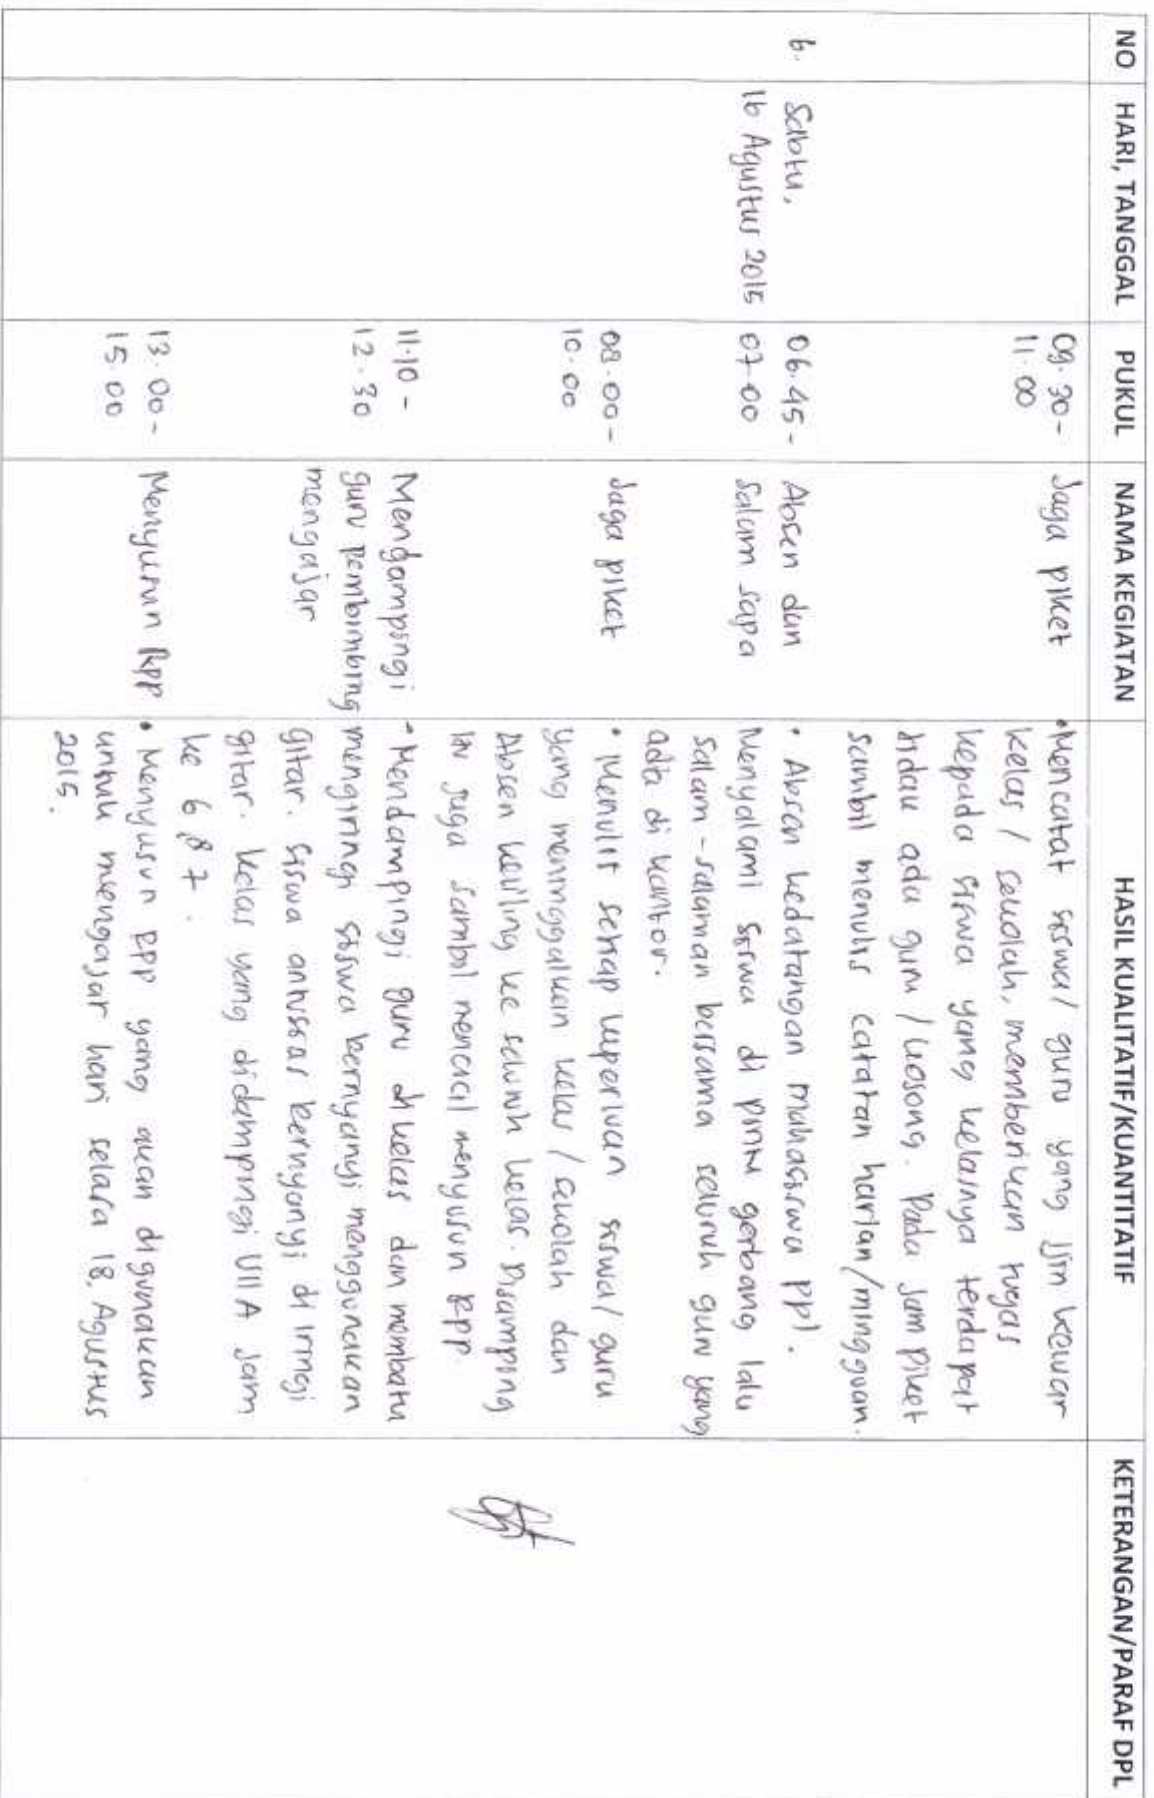 NO HARI, TANGGAL PUKUL NAMA KEGIATAN HASIL KUALITATIF/KUANTITATIF KETERANGAN/PARAF DPL
09.30 - Jaga piket • Mencatat siswa/ guru yang ijin keluar
11.00 kelas / sekolah, memberikan tugas
kepada siswa yang kelasnya terdapat
tidak ada guru / kosong. Pada jam piket
sambil menulis catatan harian/mingguan.
6. Sabtu, 06.45 - Absen dan • Absen kedatangan mahasiswa ppl.
16 Agustus 2015 07.00 salam sapa Menyalami siswa di pintu gerbang lalu
salam-salaman bersama seluruh guru yang
ada di kantor.
08.00 - Jaga piket • Menulis setiap keperluan siswa/ guru
10.00 yang meninggalkan kelas / sekolah dan
Absen keliling ke seluruh kelas. Disamping
itu juga sambil mencicil menyusun RPP.
11.10 - Mendampingi • Mendampingi guru di kelas dan membatu
12.30 guru pembimbing mengiringi siswa bernyanyi menggunakan
mengajar gitar. siswa antusias bernyanyi di iringi
gitar. kelas yang didampingi VII A jam
ke 6 & 7.
13.00 - Menyusun RPP • Menyusun RPP yang akan digunakan
15.00 untuk mengajar hari selasa 18, Agustus
2015.